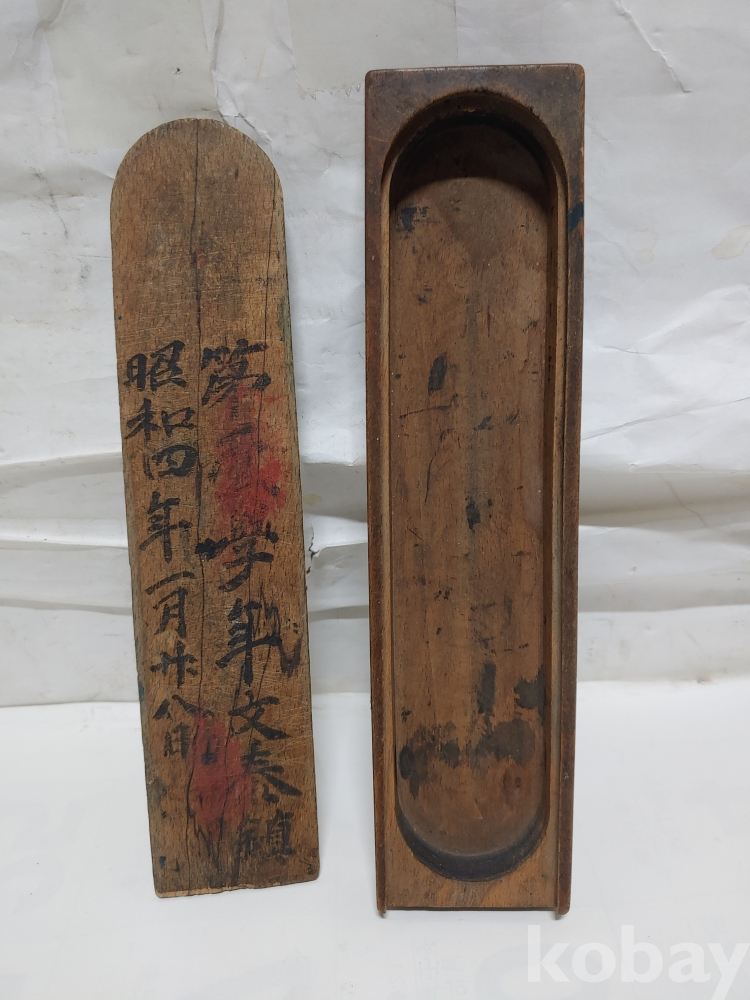 第五學年文泰鎮
昭和四年一月廿八日
kobay